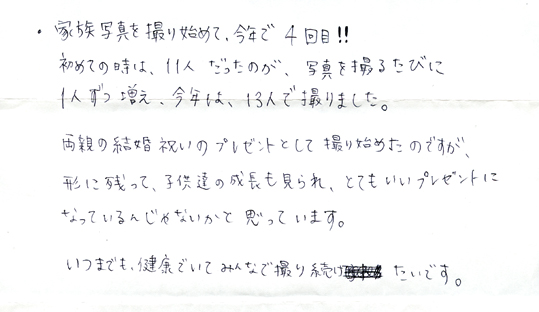 ・家族写真を撮り始めて、今年で4回目!!
初めての時は、11人だったのが、写真を撮るたびに
1人ずつ増え、今年は、13人で撮りました。
両親の結婚祝いのプレゼントとして撮り始めたのですが、
形に残って、子供達の成長も見られ、とてもいいプレゼントに
なっているんじゃないかと思っています。
いつまでも、健康でいてみんなで撮り続けたいです。